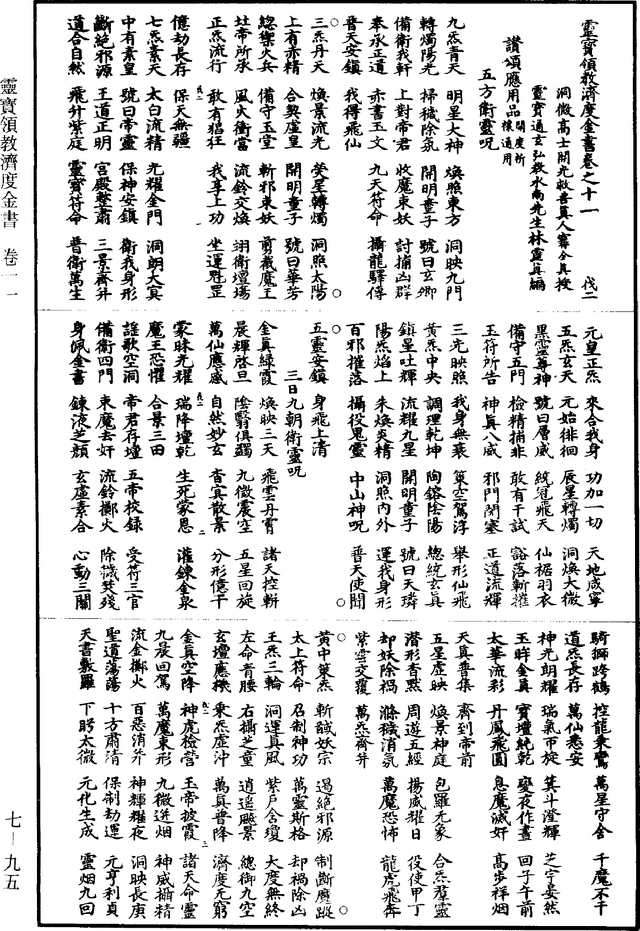 靈寶領教濟度金書卷之十一　伐二
洞微高士開光救苦真人甯全真授
靈寶通玄弘教水南先生林靈真編
讚頌應用品　開度祈禳通用
五方衛靈呪
九炁青天　明星大神　煥照東方　洞映九門
轉燭陽光　掃穢除氛　開明童子　號曰玄卿
備衛我軒　上對帝君　收魔束妖　討捕凶群
奉承正道　赤書玉文　九天符命　攝龍驛傳
普天安鎮　我得飛仙　○
三炁丹天　煥景流光　熒星轉燭　洞照太陽
上有赤精　合契虛皇　開明童子　號曰華芳
總禦火兵　備守玉堂　斬邪束妖　剪截魔王
北帝所承　風火衝當　流鈴交煥　翊衛壇場
正炁流行　敢有猖狂　我享上功　坐運魁罡
億劫長存　保天無疆
七炁素天　太白流精　光耀金門　洞朗大冥
中有素皇　號曰帝靈　保神安鎮　衛我身形
斷絕邪源　王道正明　宮殿整肅　三景齊并
道合自然　飛升紫庭　靈寶符命　普衛萬生
元皇正炁　來合我身　功加一切　天地咸寧
五炁玄天　元始徘徊　辰星轉燭　洞煥大微
黑靈尊神　號曰層威　統冠飛天　仙裾羽衣
備守五門　檢精捕非　敢有干試　豁落斬摧
玉符所告　神真八威　邪門閉塞　正道流輝
三光映照　我身無衰　策空駕浮　舉形仙飛
黃炁中央　調理乾坤　陶鎔陰陽　總統玄真
鎮星吐輝　流耀九星　開明童子　號曰天璘
陽炁焰上　朱煥炎精　洞照內外　運我身形
百邪摧落　攝役鬼靈　中山神呪　普天使聞
五靈安鎮　身飛上清　○
三日九朝衛靈呪
金真緣霞　煥映三天　飛雲丹霄　諸天控軿
晨輝啓旦　陰翳俱蠲　九微震空　五星回旋
萬仙應感　自然妙玄　杳真散景　分形億千
蒙昧光耀　瑞降壇乾　生死蒙恩　灌鍊金泉
魔王恐懼　合景三田
謡歌空洞　帝君存壇　五帝校錄　受符三官
備衛四門　束魔去奸　流鈴擲火　除穢焚殘
身佩金書　鍊液芝顏　玄虛素合　心動三關
騎獅跨鶴　控龍乘鸞　萬星守舍　千魔不干
道炁長存　萬仙悉安
神光朗耀　瑞氣帀旋　箕斗澄輝　芝宇晏然
玉眸金真　寶壇純乾　變夜作晝　回子午前
太華流彩　丹鳳飛圓　息魔滅奸　高步祥烟
天真普集　齊到帝前
五星虛映　煥景神庭　包羅元象　合炁群靈
潛形杳默　周遊五經　揚威耀日　役使甲丁
却妖除禍　滌穢消氛　萬魔恐怖　龍虎飛奔
紫雲交覆　萬炁齊并　○
黃中策炁　斬馘妖宗　遏絕邪源　制斷魔蹤
太上符命　召制神功　萬靈斯格　却禍除凶
王炁三輪　洞運真風　紫戶含瓊　大度無終
左命青腰　右攝芝童　逍遥飈景　總御九空
玄壇應機　乘炁虛沖　萬真普降　濟度元窮
金真空降　神虎檢營　玉帝披霞　諸天命靈
九晨回駕　萬魔束形　九微迸烟　神威攝精
流金擲火　百惡消并　神輝耀夜　洞映長庚
聖道蕩蕩　十方肅清　保制劫運　元亨利貞
天書敷羅　下眄太微　元化生成　靈烟九回
靈寶領教濟度金書　卷一一
七—九五